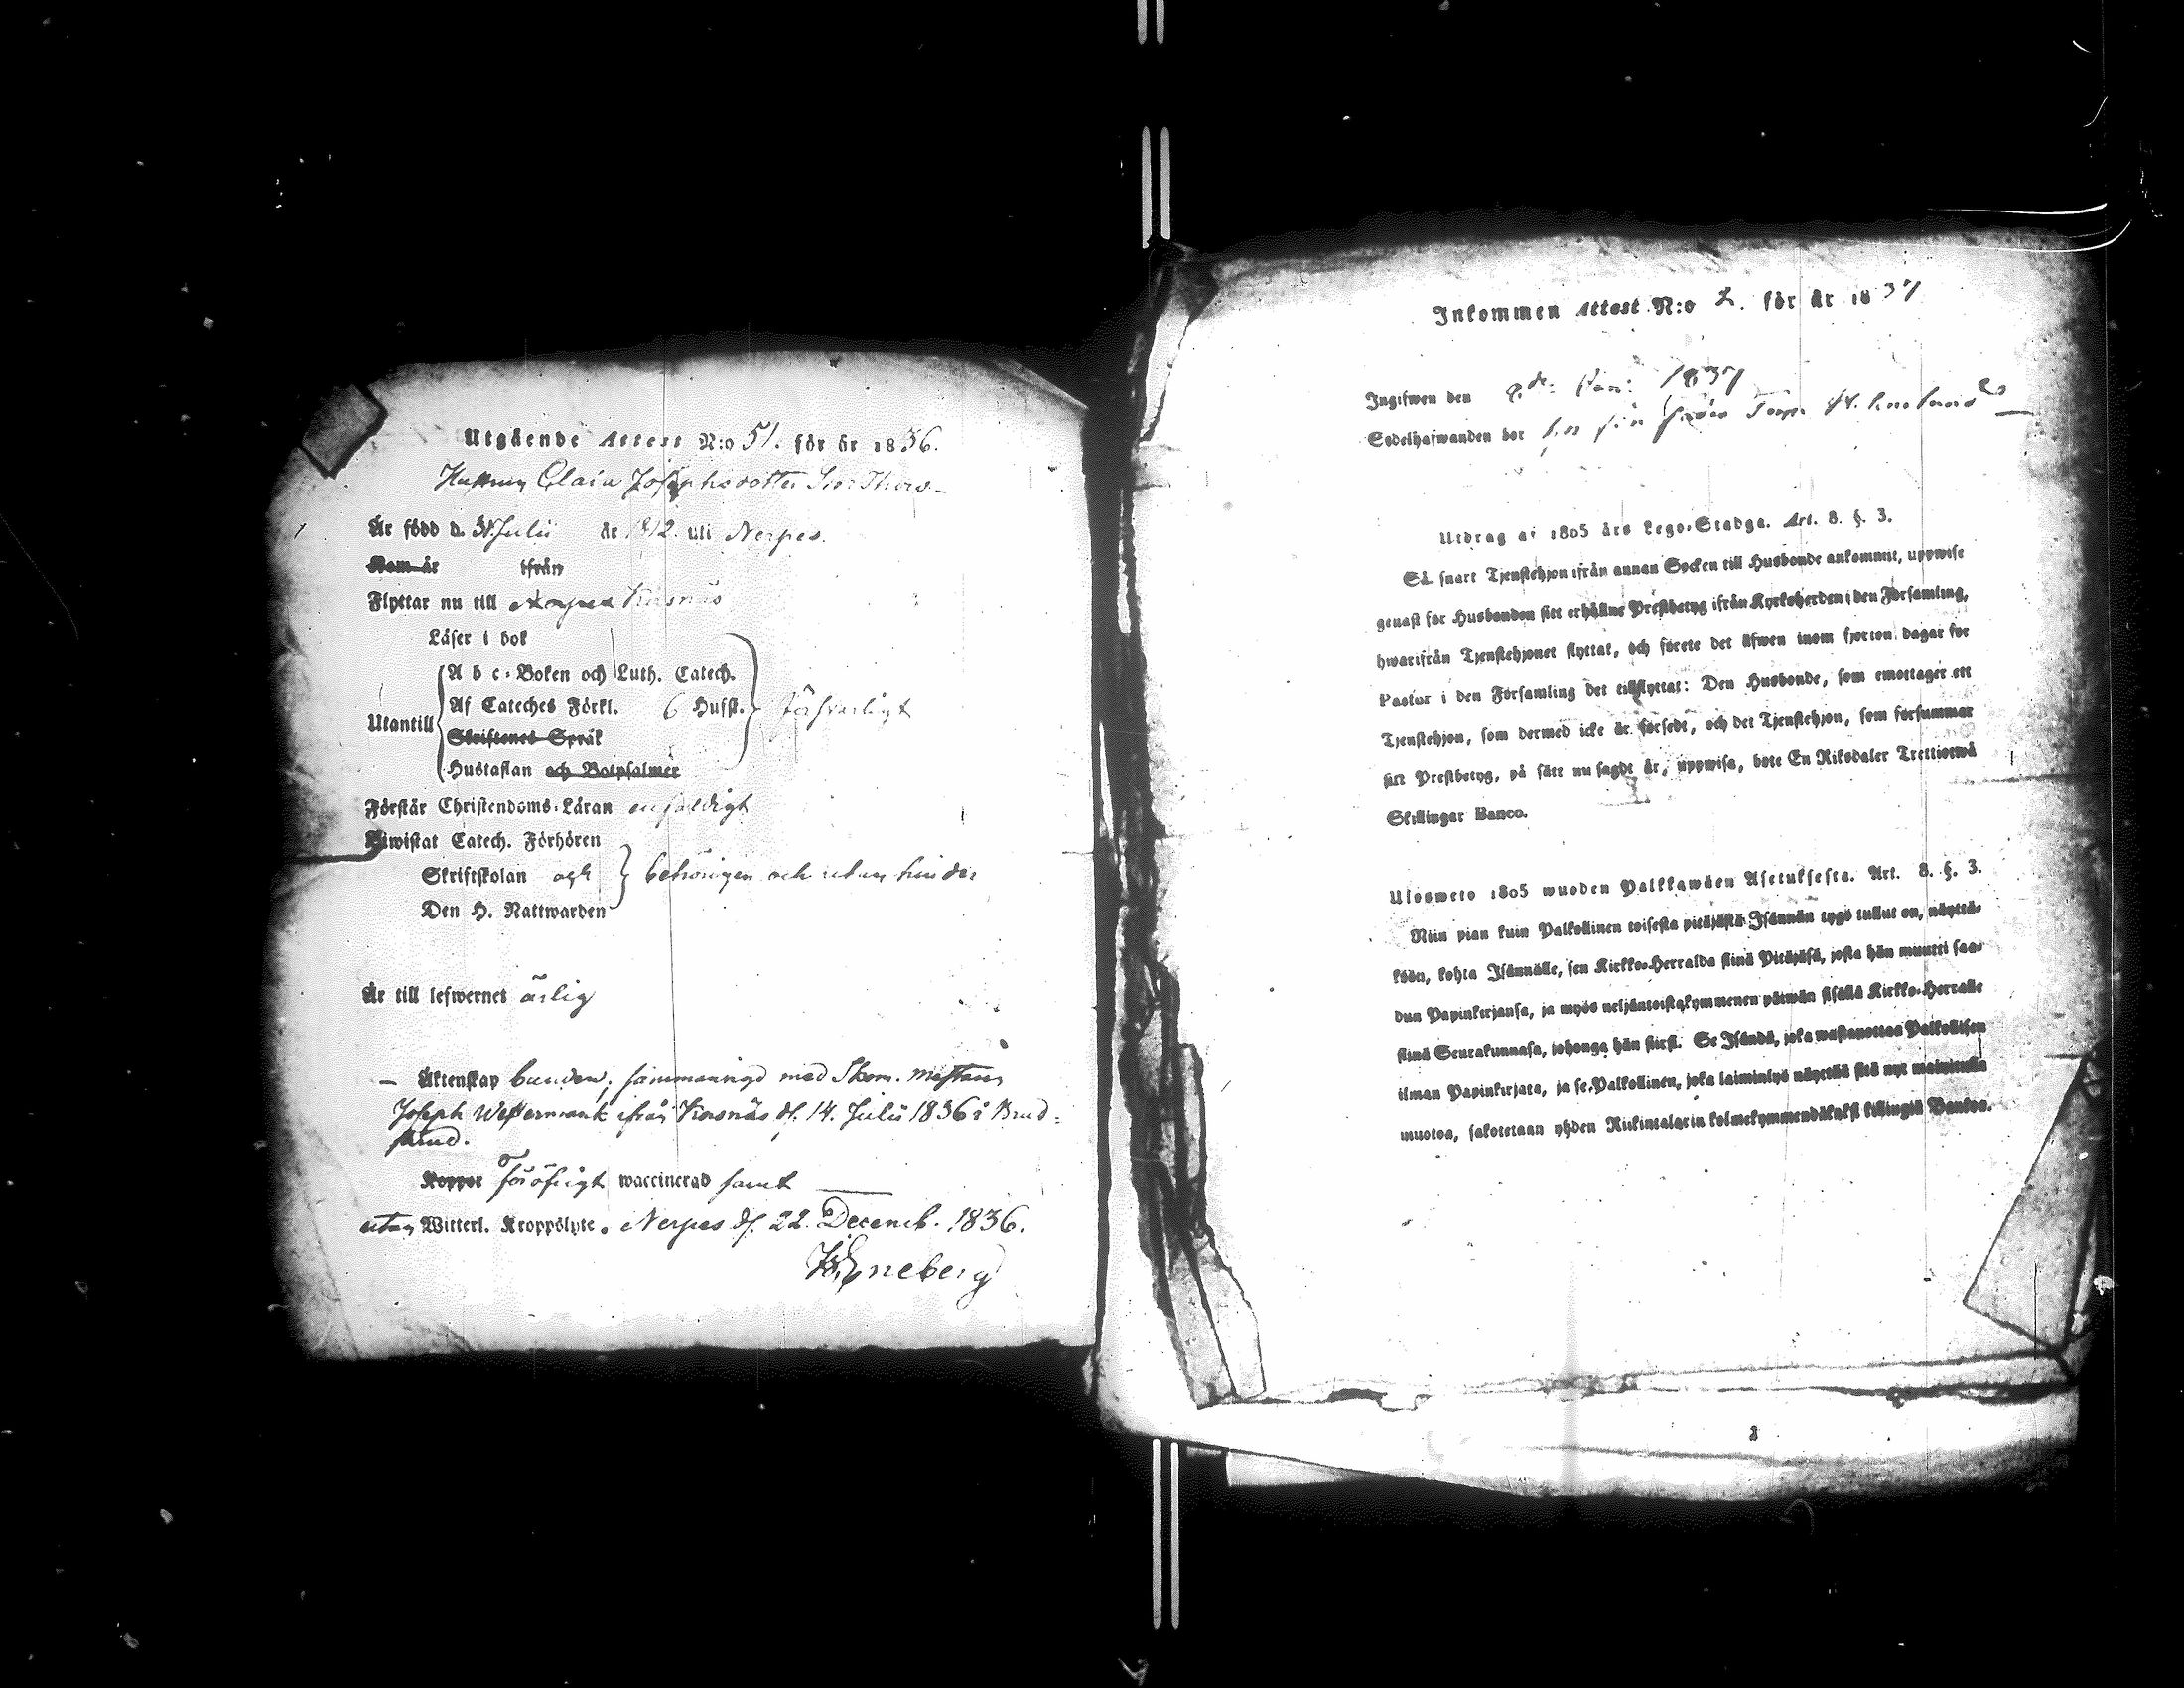 Utgående Attest N:o 51. för år 1836.
Hustrun Clara Josephsdotter
Är född d. 31 Julii år 1812. uti Nerpes.
Kom år ifrån
Flyttar nu till Kasnäs
Läser i bok
A b c-Boken och Luth. Catech.
Af Cateches Förkl. 6 Hufst. försvarligt
Utantill
Skriftenes Språk
Hustaflan och Botpsalmer
Förstår Christendoms-Läran enfaldigt
Biwistat Catech. Förhören
Skriftskolan och behörigen och utan hinder
Den H. Nattwarden
Är till lefwernet ärlig
— Äktenskap bunden; sammanvigd med Skom. mästaren
Joseph Westermark ifrån Kasnäs d. 14. Julii 1836 i
sund.
Koppor waccinerad samt
utan Witterl. Kroppslyte. Nerpes d. 22. Decemb. 1836.
Eneberg
Inkommen Attest N:o 2. för år 1837
Ingifwen den 1837
Sedelhafwanden bor hos sin
Utdrag af 1805 års Lego-Stadga. Art. 8. §. 3.
Så snart Tjenstehjon ifrån annan Socken till Husbonde ankommit, uppwise
genast för Husbonden sitt erhållne Prestbetyg ifrån Kyrkoherden i den Församling,
hwarifrån Tjenstehjonet flyttat, och förete det äfwen inom fjorton dagar för
Pastor i den Församling det tillflyttat: Den Husbonde, som emottager ett
Tjenstehjon, som dermed icke är försedt, och det Tjenstehjon, som försummar
sitt Prestbetyg, på sätt nu sagdt är, uppwisa, böte En Riksdaler Trettiotwå
Skillingar Banco.
Ulosweto 1805 wuoden Palkkawäen Asetuksesta. Art. 8. §. 3.
Niin pian kuin Palkollinen toisesta pitäjästä Isännän tygö tullut on, näyttä-
köön, kohta Isännälle, sen Kirkko-Herralda siinä Pitäjäsä, josta hän muutti saa-
dun Papinkirjansa, ja myös neljäntoistakymmenen päiwän sisällä Kirkko-Herralle
siinä Seurakunnasa, johonga hän siirsi. Se Isändä, joka wastanottaa Palkollisen
ilman Papinkirjata, ja se Palkollinen, joka laiminlyö näyttää sitä nyt mainitulla
muotoa, sakotetaan yhden Riikintalarin kolmekymmendäkaksi killingiä Bankos.